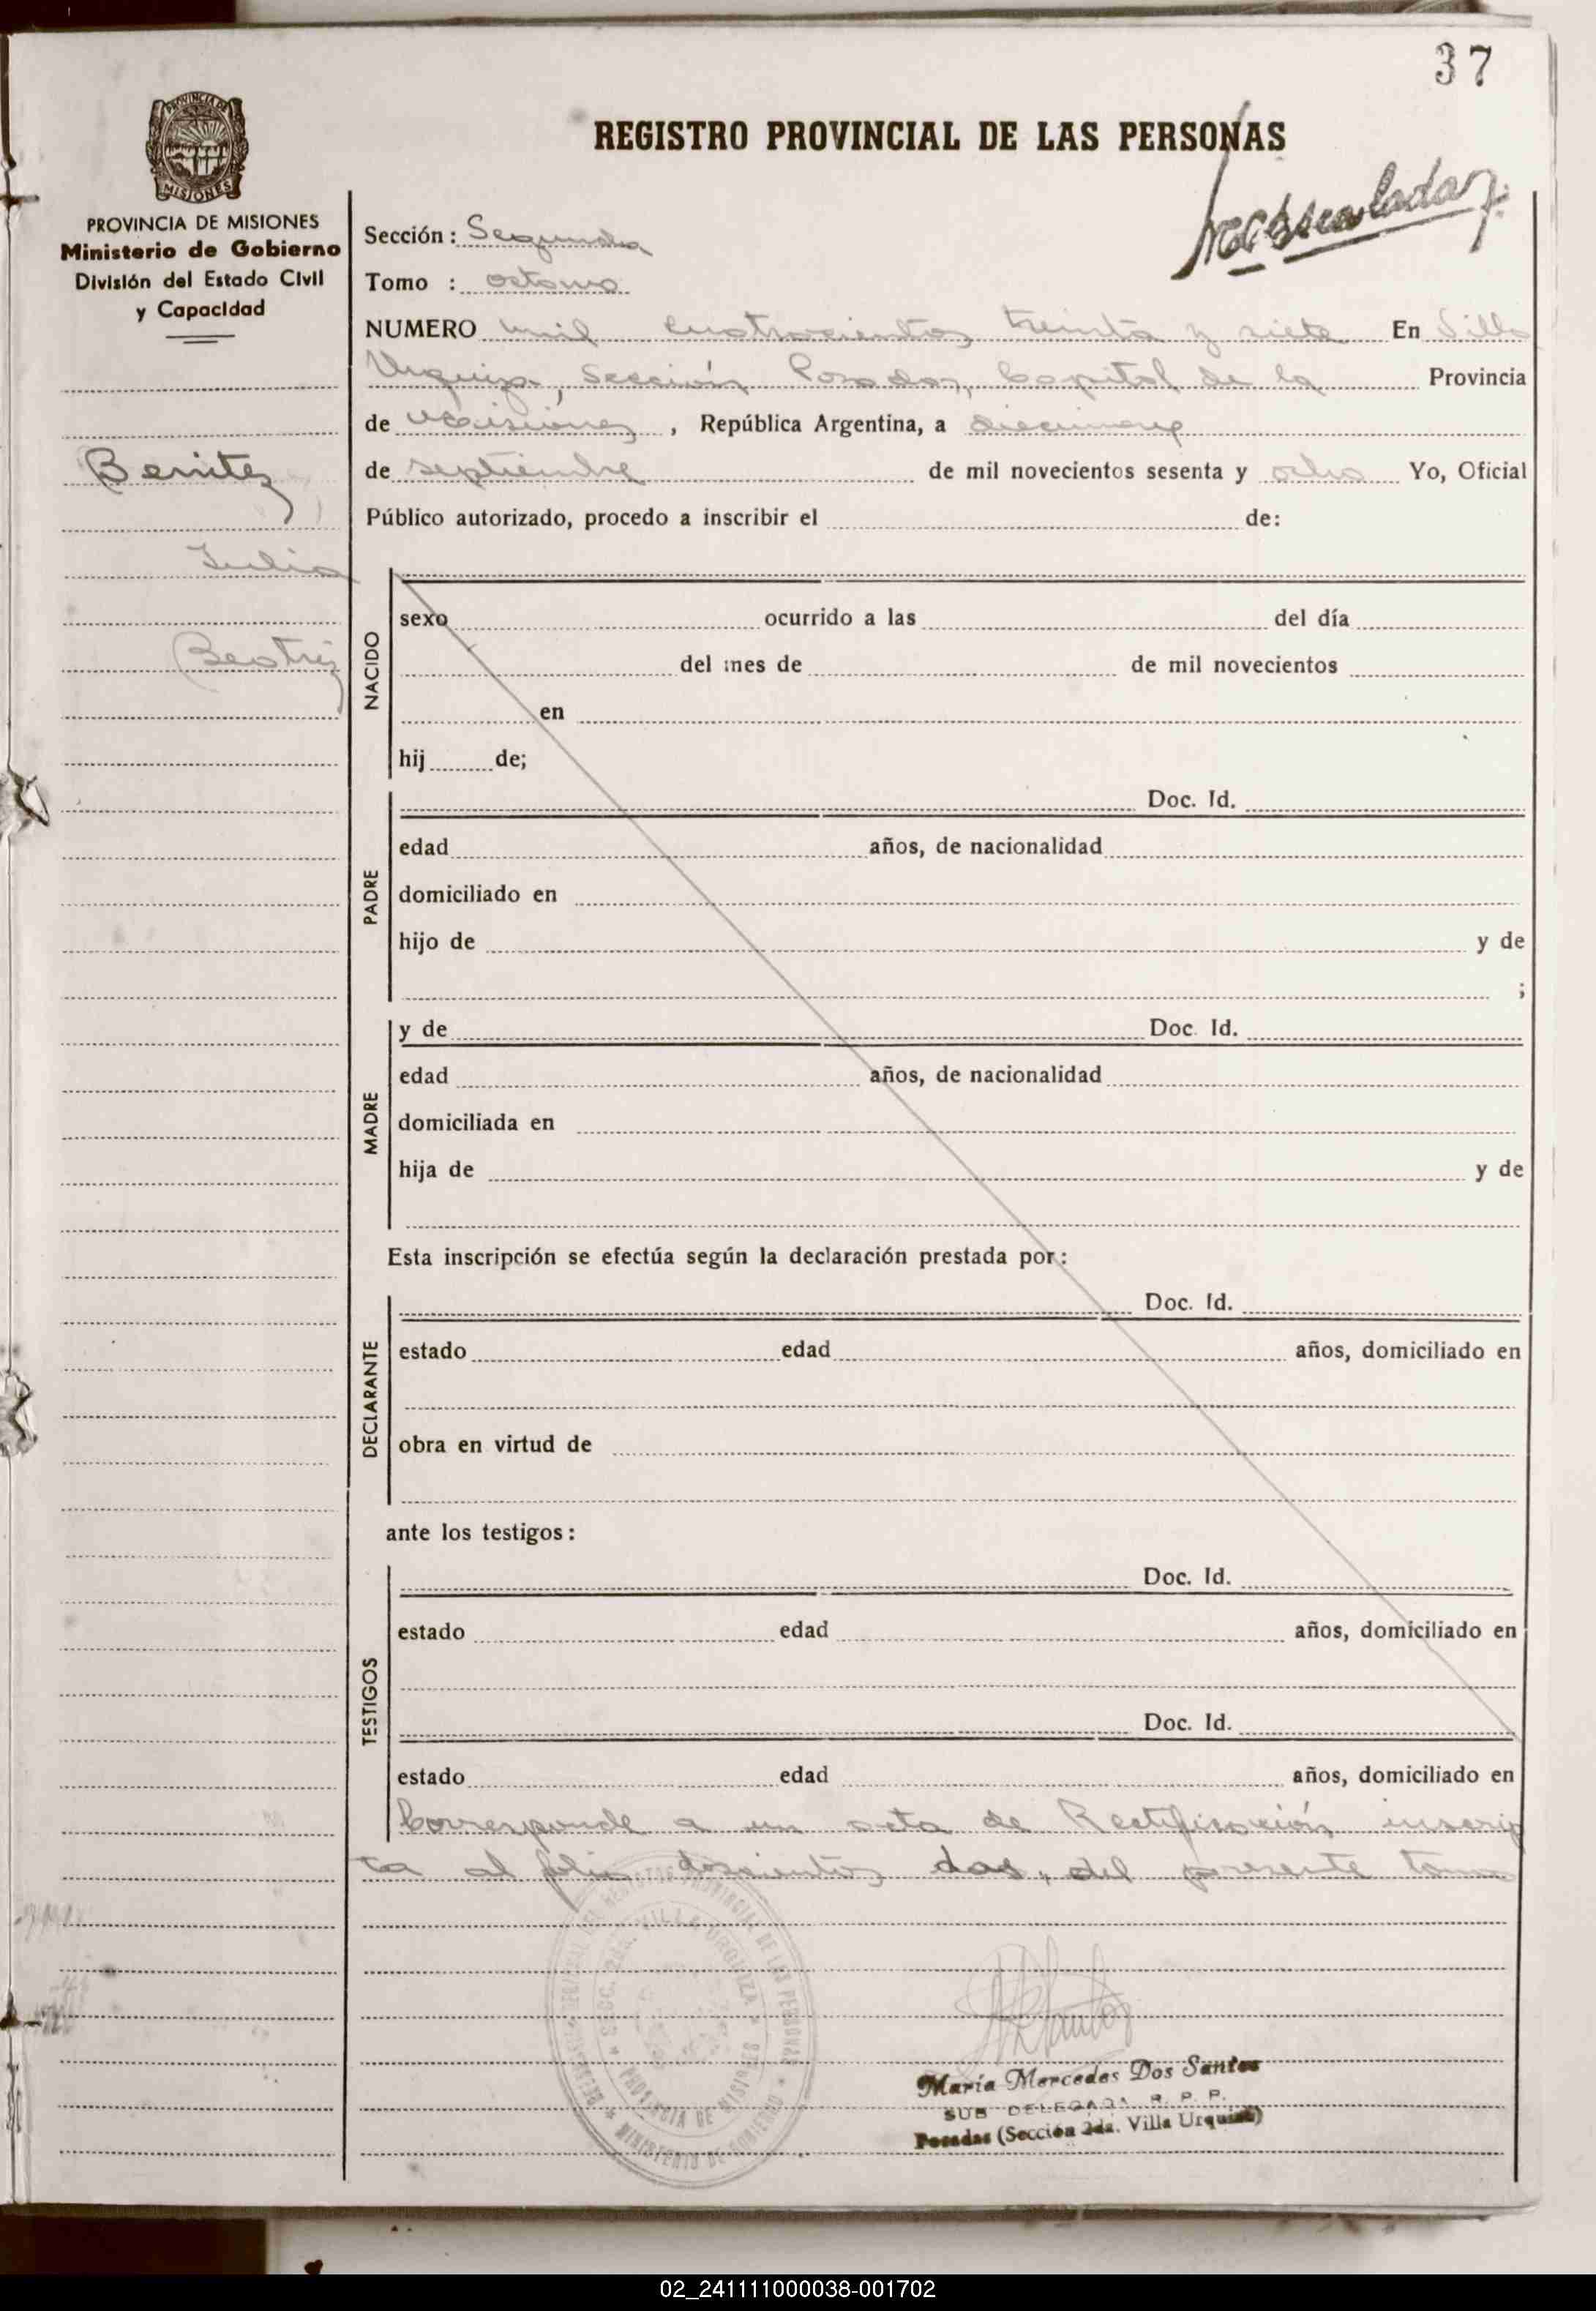 37
REGISTRO PROVINCIAL DE LAS PERSONAS
PROVINCIA DE MISIONES
PROVINCIA DE MISIONES
Ministerio de Gobierno
División del Estado Civil
y Capacidad
Benitez
Julia
Beatriz
Sección: Segunda
Tomo : octavo
NUMERO mil cuatrocientos treinta y siete En Villa
Urquiza, Sección Posadas, Capital de la Provincia
de Misiones, República Argentina, a diecinueve
de septiembre de mil novecientos sesenta y ocho Yo, Oficial
Público autorizado, procedo a inscribir el de:
NACIDO
sexo ocurrido a las del día
del mes de de mil novecientos
en
hij de;
PADRE
Doc. Id.
edad años, de nacionalidad
domiciliado en
hijo de y de
;
MADRE
y de Doc. Id.
edad años, de nacionalidad
domiciliada en
hija de y de
Esta inscripción se efectúa según la declaración prestada por:
DECLARANTE
Doc. Id.
estado edad años, domiciliado en
obra en virtud de
ante los testigos:
TESTIGOS
Doc. Id.
estado edad años, domiciliado en
Doc. Id.
estado edad años, domiciliado en
Corresponde a un acta de Rectificación inscrip
ta al folio doscientos dos, del presente tomo
REGISTRO PROVINCIAL DE LAS PERSONAS
SECC. 2da. VILLA URQUIZA
PROVINCIA DE MISIONES
MINISTERIO DE GOBIERNO
María Mercedes Dos Santos
SUB DELEGADA R. P. P.
Posadas (Sección 2da. Villa Urquiza)
02_241111000038-001702